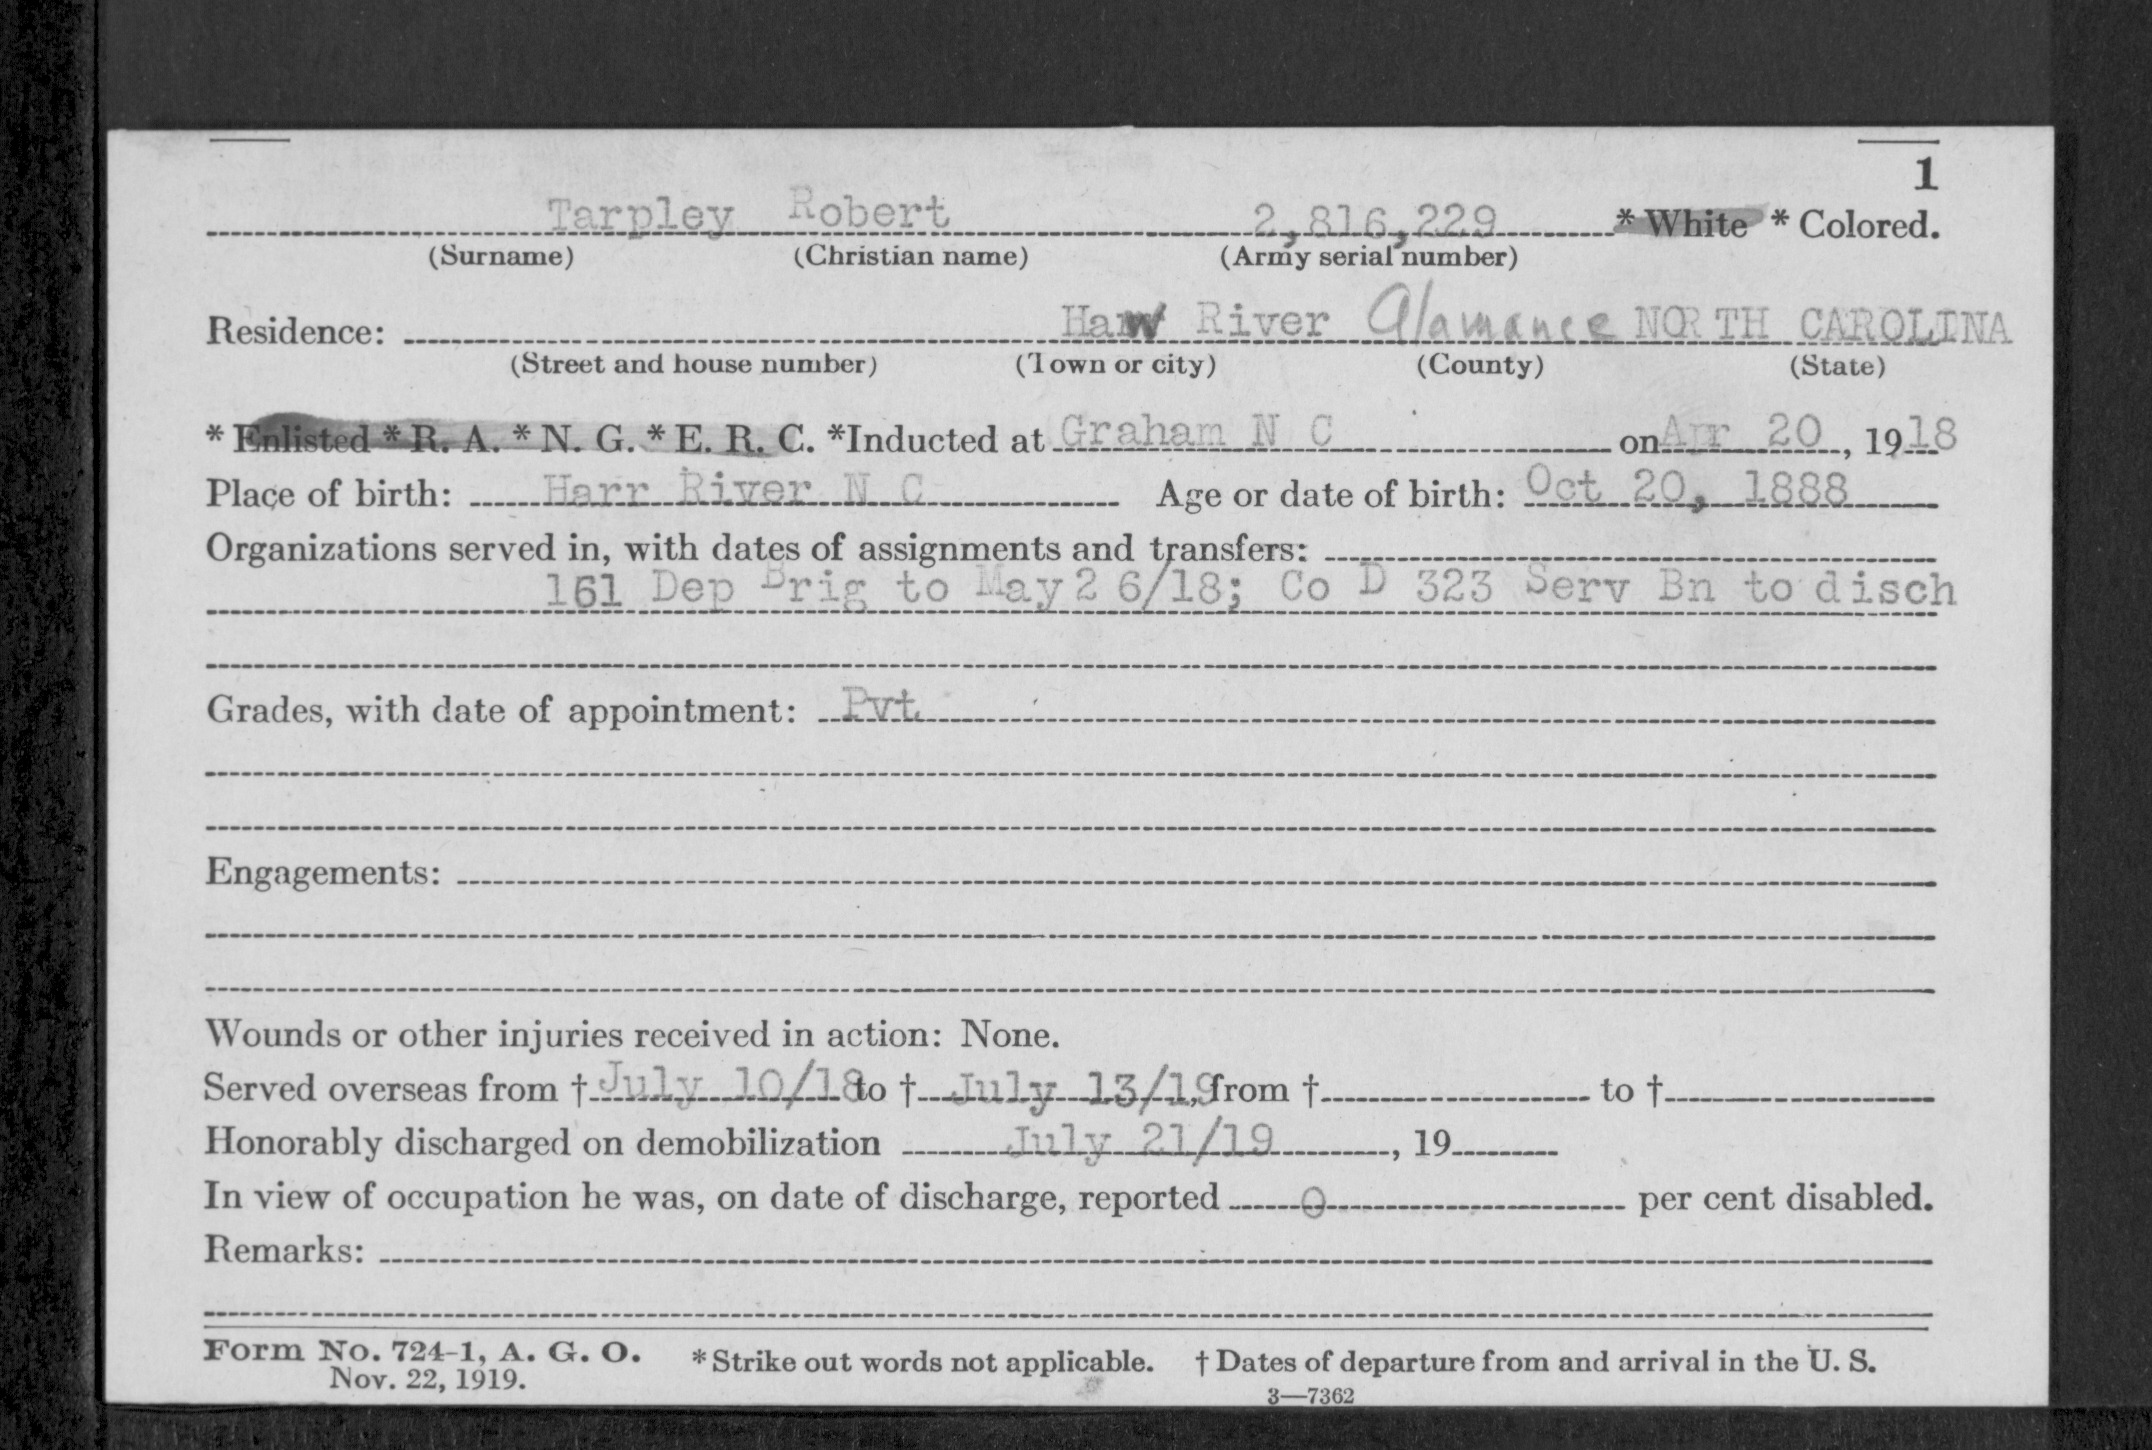 1
Tarpley Robert 2,816,229 * White * Colored.
(Surname) (Christian name) (Army serial number)
Residence: Haw River Alamance NORTH CAROLINA
(Street and house number) (Town or city) (County) (State)
* Enlisted * R. A. * N. G. * E. R. C. *Inducted at Graham N C on Apr 20, 1918
Place of birth: Harr River N C Age or date of birth: Oct 20, 1888
Organizations served in, with dates of assignments and transfers:
161 Dep Brig to May 26/18; Co D 323 Serv Bn to disch
Grades, with date of appointment: Pvt
Engagements:
Wounds or other injuries received in action: None.
Served overseas from † July 10/18 to † July 13/19, from † to †
Honorably discharged on demobilization July 21/19, 19
In view of occupation he was, on date of discharge, reported 0 per cent disabled.
Remarks:
Form No. 724-1, A. G. O. * Strike out words not applicable. † Dates of departure from and arrival in the U. S.
Nov. 22, 1919.
3—7362